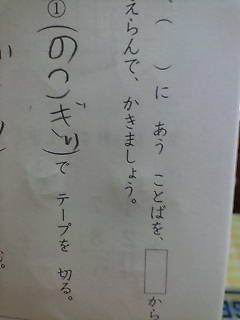 、（　）に　あう　ことばを、□から
えらんで、かきましょう。
①（のこぎり）で　テープを　切る。